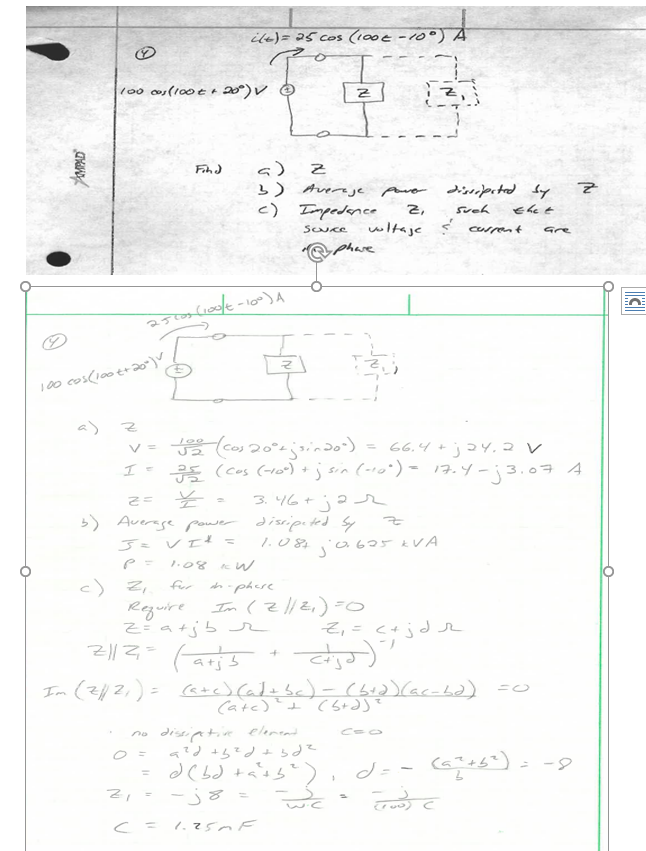 i(t) = 25 cos (100t - 10°) A
④
100 cos(100t + 20°) V
Z
Z₁
AMPAD
Find a) Z
b) Average power dissipated by Z
c) Impedance Z₁ such that
source voltage & current are
phase
25 cos (100t - 10°) A
④
100 cos(100t + 20°) V
Z
Z₁
a) Z
V = 100/√2 (cos 20° + j sin 20°) = 66.4 + j24.2 V
I = 25/√2 (cos (-10°) + j sin (-10°) = 17.4 - j3.07 A
Z = V/I = 3.46 + j2 Ω
b) Average power dissipated by Z
S = V I* = 1.08 + j0.625 kVA
P = 1.08 kW
c) Z₁ for in-phase
Require Im (Z // Z₁) = 0
Z = a + jb Ω Z₁ = c + jd Ω
Z // Z₁ = (1/(a+jb) + 1/(c+jd))⁻¹
Im (Z // Z₁) = ((a+c)(ad+bc) - (b+d)(ac-bd))/((a+c)² + (b+d)²) = 0
no dissipative element c = 0
0 = a²d + b²d + bd²
= d(bd + a² + b²), d = - (a²+b²)/b = -8
Z₁ = -j8 = -j/(ωC) = -j/((100) C)
C = 1.25 mF